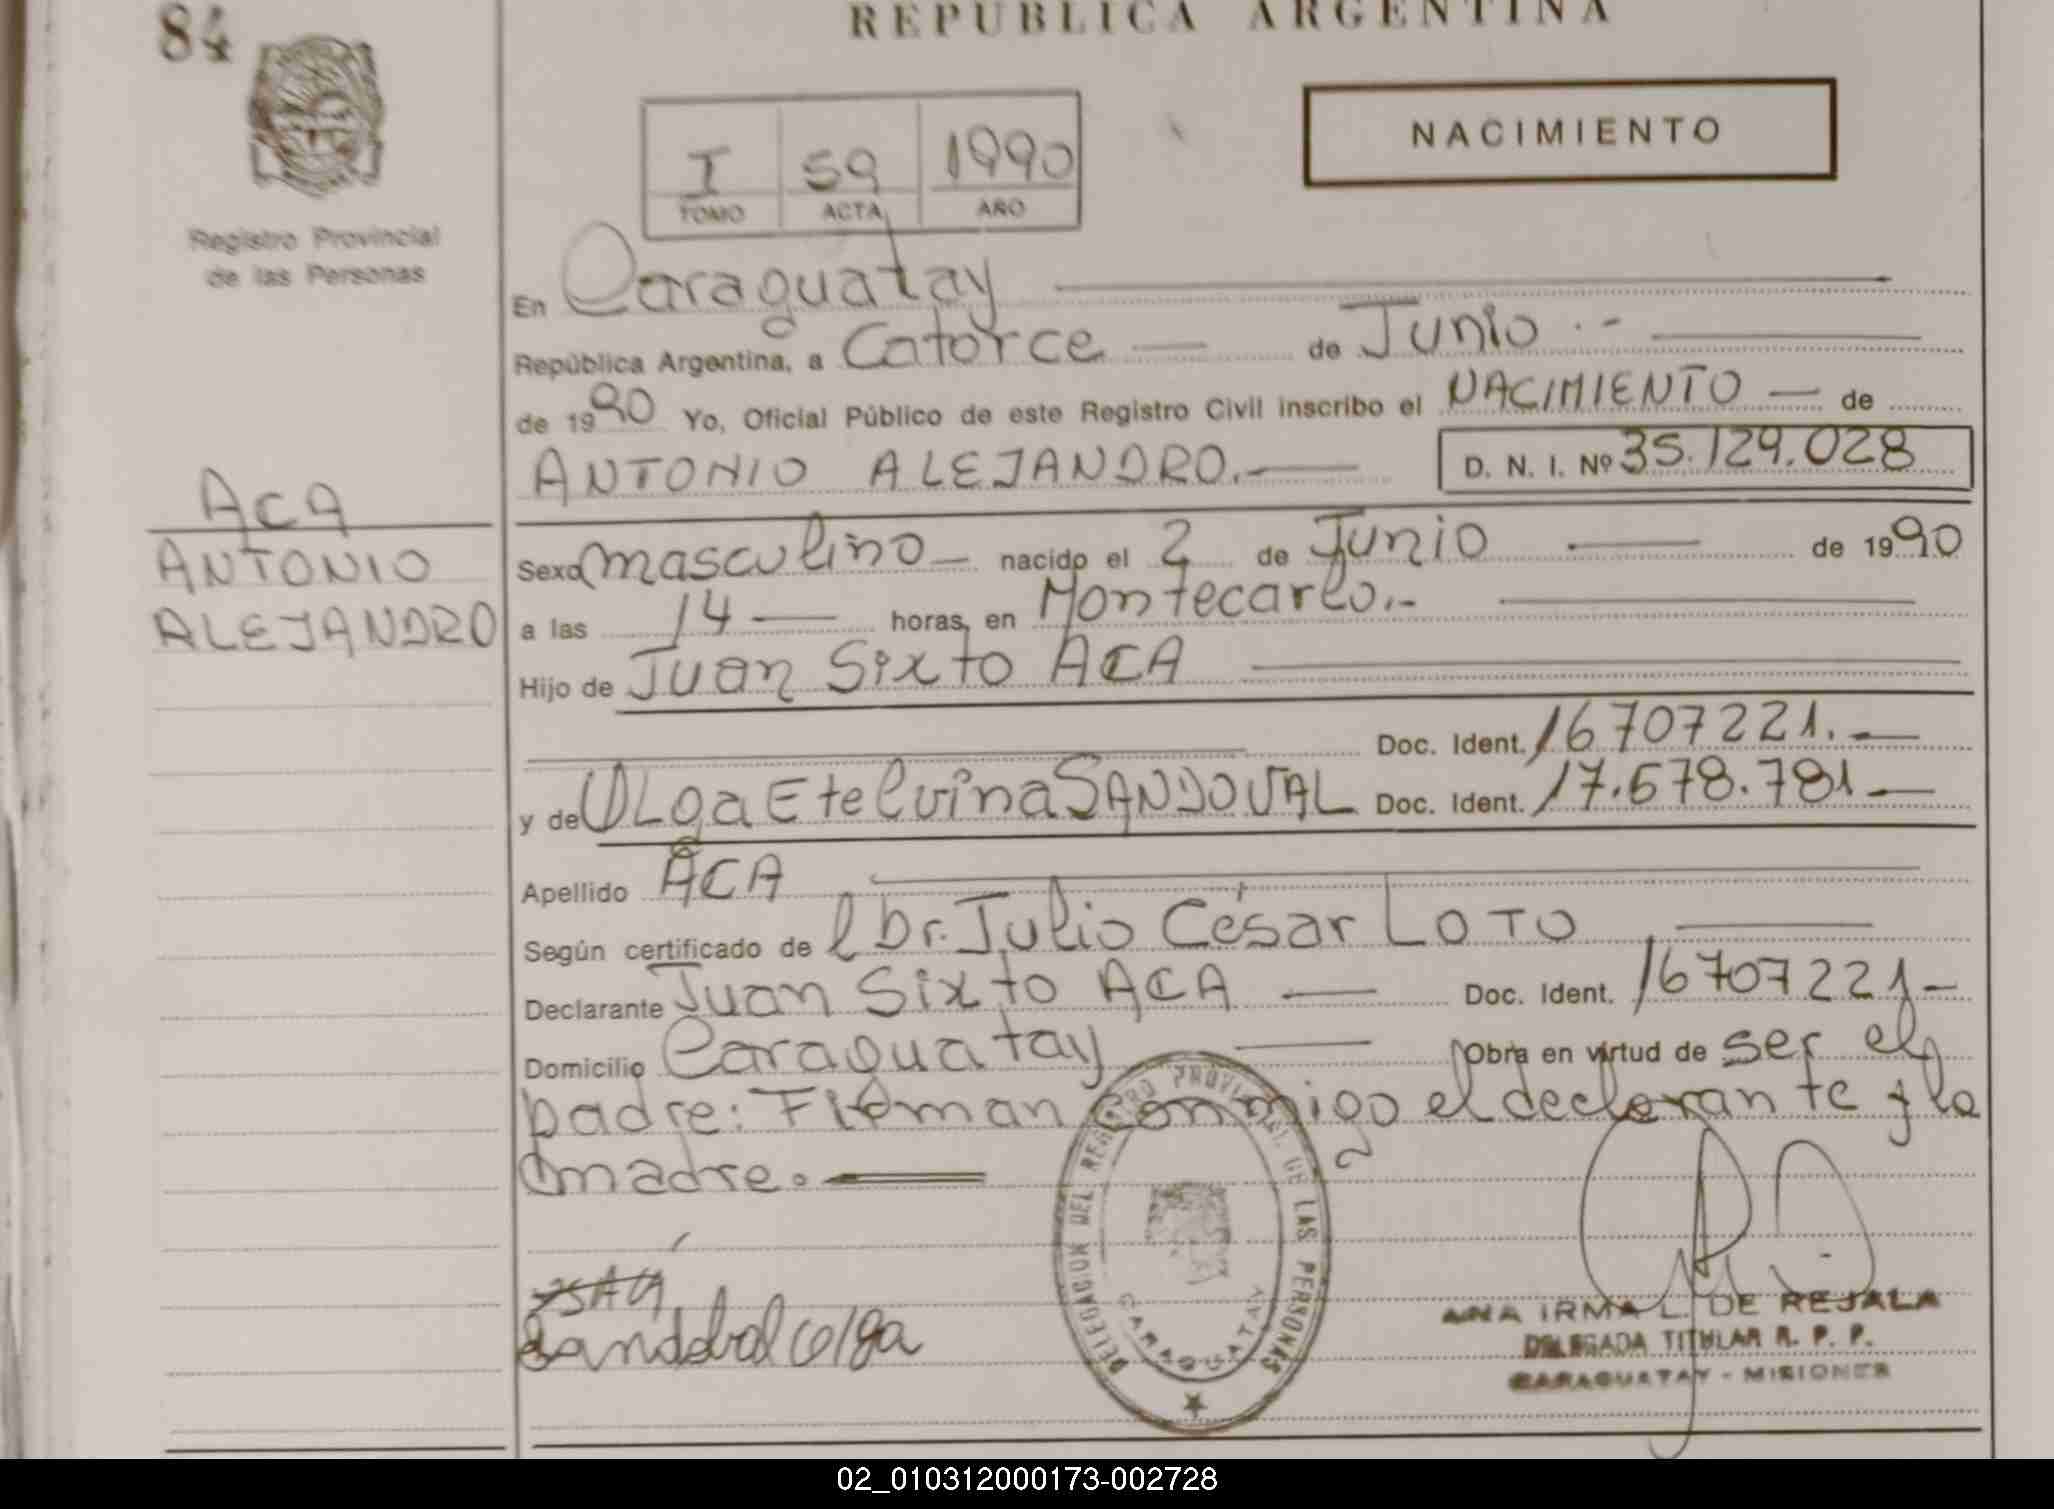 84
REPUBLICA ARGENTINA
NACIMIENTO
I 59 1990
TOMO ACTA AÑO
Registro Provincial
de las Personas
En Caraguatay
República Argentina, a Catorce de Junio
de 1990 Yo, Oficial Público de este Registro Civil inscribo el NACIMIENTO de
ANTONIO ALEJANDRO. D. N. I. Nº 35.129.028
ACA
ANTONIO
ALEJANDRO
Sexo masculino nacido el 2 de Junio de 1990
a las 14 horas, en Montecarlo.-
Hijo de Juan Sixto ACA
Doc. Ident. 16707221.
y de OLga Etelvina SANDOVAL Doc. Ident. 17.678.781
Apellido ACA
Según certificado de l Dr. Julio César LOTO
Declarante Juan Sixto ACA Doc. Ident. 16707221
Domicilio Caraguatay Obra en virtud de ser el
padre: Firman conmigo el declarante y la
madre.
Sandoval olga
DELEGACION DEL REGISTRO PROVINCIAL DE LAS PERSONAS
CARAGUATAY
ANA IRMA L. DE REJALA
DELEGADA TITULAR R. P. P.
CARAGUATAY - MISIONES
02_010312000173-002728